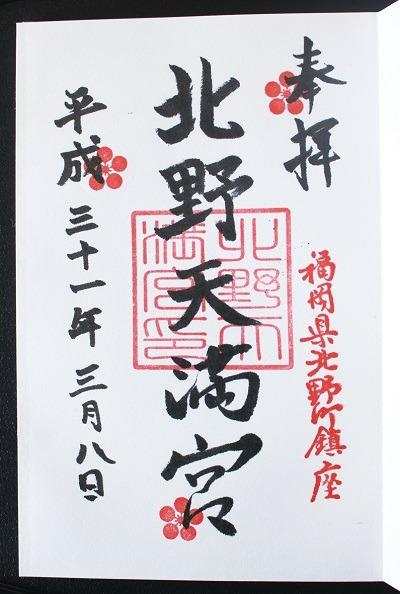 奉拝
福岡県北野町鎮座
北野天満宮
北野天満宮印
平成三十一年三月八日